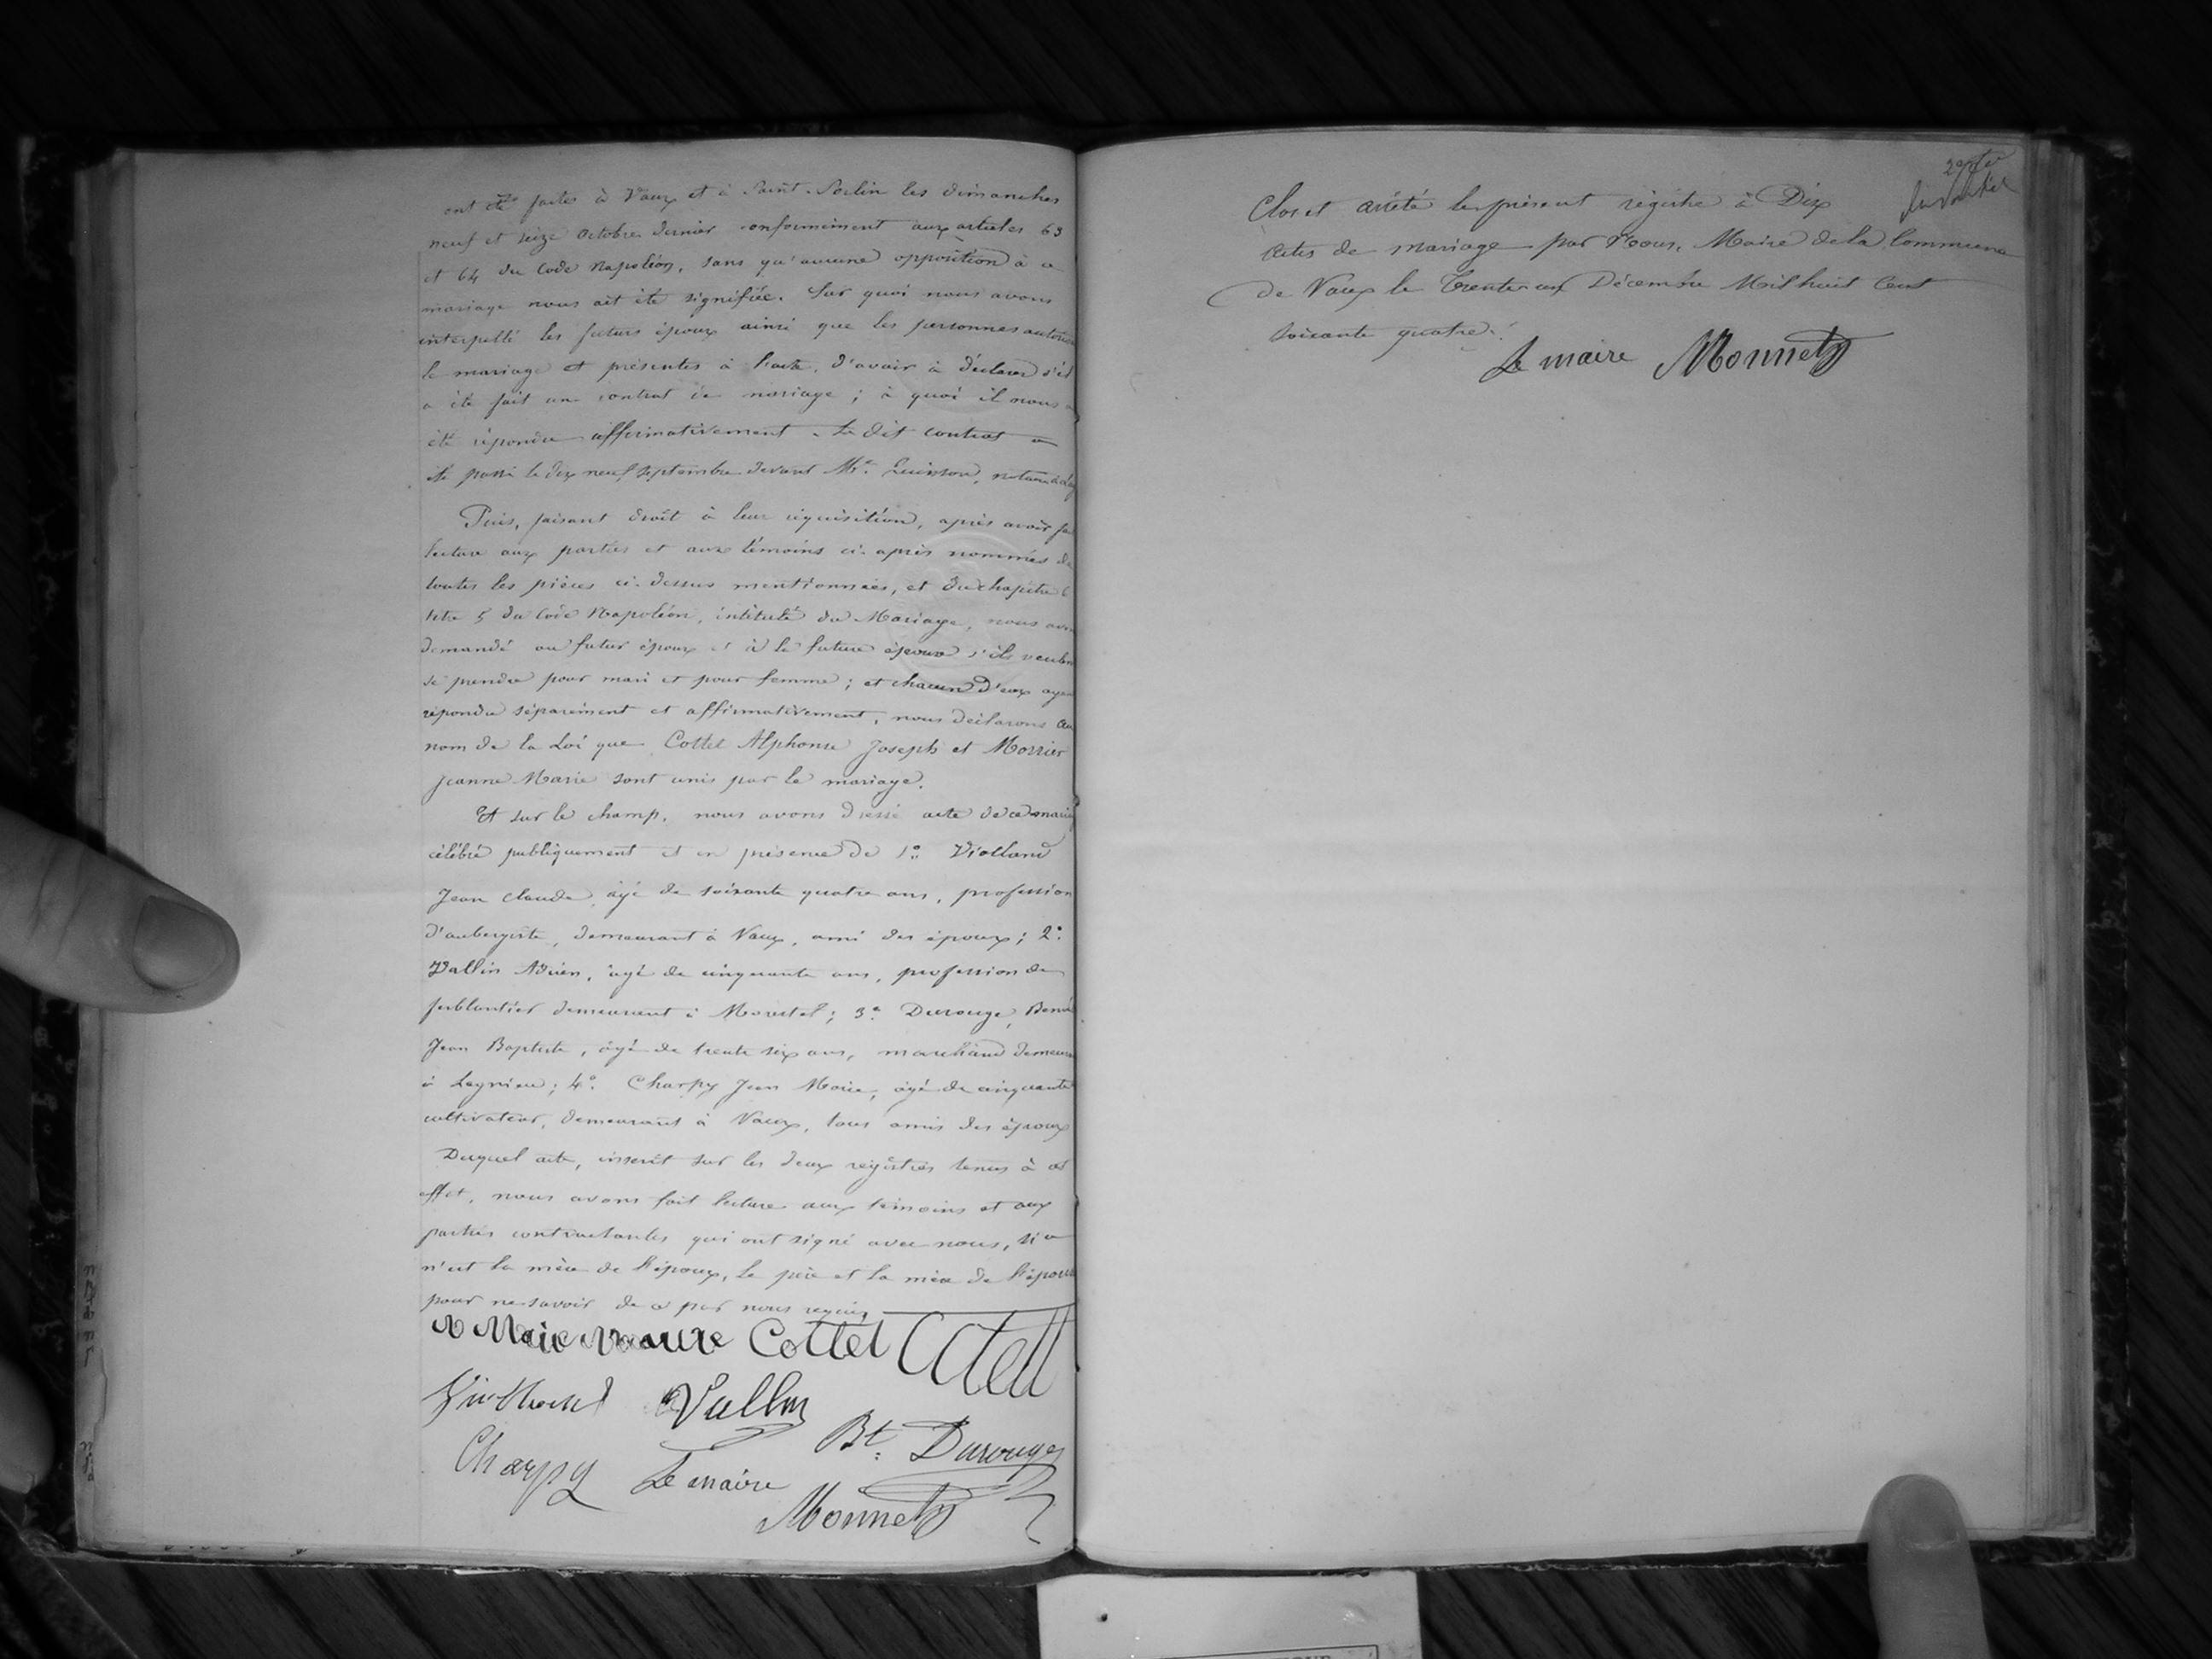 ont été faites à Vaux et à Saint-Sorlin les dimanches
neuf et seize Octobre dernier conformément aux articles 63
et 64 du Code Napoléon, sans qu'aucune opposition à ce
mariage nous ait été signifiée. Sur quoi nous avons
interpellé les futurs époux ainsi que les personnes autoris
le mariage et présentes à l'acte, d'avoir à déclarer s'il
a été fait un contrat de mariage ; à quoi il nous a
été répondu affirmativement. Le dit contrat a
été passé le dix neuf septembre devant Me. Quinson, notaire à
Puis, faisant droit à leur réquisition, après avoir fa
lecture aux parties et aux témoins ci-après nommés de
toutes les pièces ci-dessus mentionnées, et du chapitre 6
titre 5 du Code Napoléon, intitulé du Mariage, nous avo
demandé au futur époux et à la future épouse s'ils veulen
se prendre pour mari et pour femme ; et chacun d'eux aya
répondu séparément et affirmativement, nous déclarons au
nom de la Loi que Cottet Alphonse Joseph et Morrier
Jeanne Marie sont unis par le mariage.
Et sur le champ, nous avons dressé acte de ce mariag
célébré publiquement et en présence de 1° Violland
Jean Claude, âgé de soixante quatre ans, profession
d'aubergiste, demeurant à Vaux, ami des époux ; 2°
Vallin Adrien, âgé de cinquante ans, profession de
ferblantier demeurant à Morestel ; 3° Durouge, Benoi
Jean Baptiste, âgé de trente six ans, marchand demeura
à Lagnieu ; 4° Charpy Jean Marie, âgé de cinquante
cultivateur, demeurant à Vaux, tous amis des époux
Duquel acte, inscrit sur les deux registres tenus à cet
effet, nous avons fait lecture aux témoins et aux
parties contractantes qui ont signé avec nous, si ce
n'est la mère de l'époux, le père et la mère de l'épouse
pour ne savoir de ce par nous requis
Cottet
Vallin
Bt. Durouge
Charpy Le maire
Monnet
Clos et arrêté le présent registre à Dix
actes de mariage par Nous, Maire de la Commune
de Vaux le Trente un Décembre Mil huit Cent
soixante quatre.
Le maire Monnet